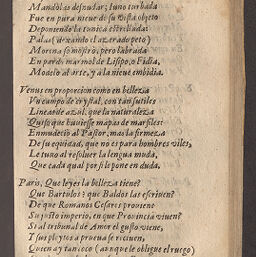 Mandòlas desnudar; Iuno turbada
Fue en pura nieue de su vista objeto
Deponiendo la tunica
Palas dexando el azerado peto)
Morena se mostrò, pero labrada
En pardo marmol de Lisipo, o Fidia,
Modelo al arte, y à la nieue embidia.
Venus en proporcion como en belleza
Vn campo de crystal, con tan sutiles
Lineas de azul, que la naturaleza
Quiso que tuuiesse mapas de marfiles:
Enmudeciò al Pastor, mas la firmeza
De su equidad, que no es para hombres viles,
Le tuuo al resoluer la lengua muda,
Que cada qual por si le pone en duda.
Paris, Que leyes la belleza tiene?
Que Bartulos? que Baldos las escriuen?
De que Romanos Cesares prouiene
Su justo imperio, en que Prouincia viuen?
Si al tribunal de Amor el gusto viene,
Y sus pleytos a prueua se reciuen,
Quien ay tan loco (aunque le obligue el ruego)